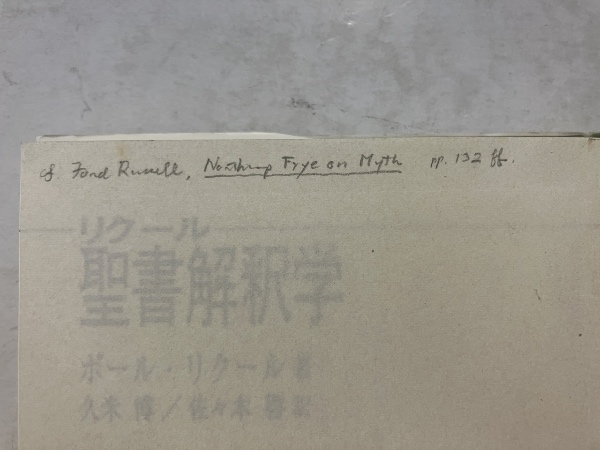 cf. Ford Russell, Northrop Frye on Myth pp. 132 ff.
リクール
聖書解釈学
ポール・リクール著
久米 博／佐々木 勝訳